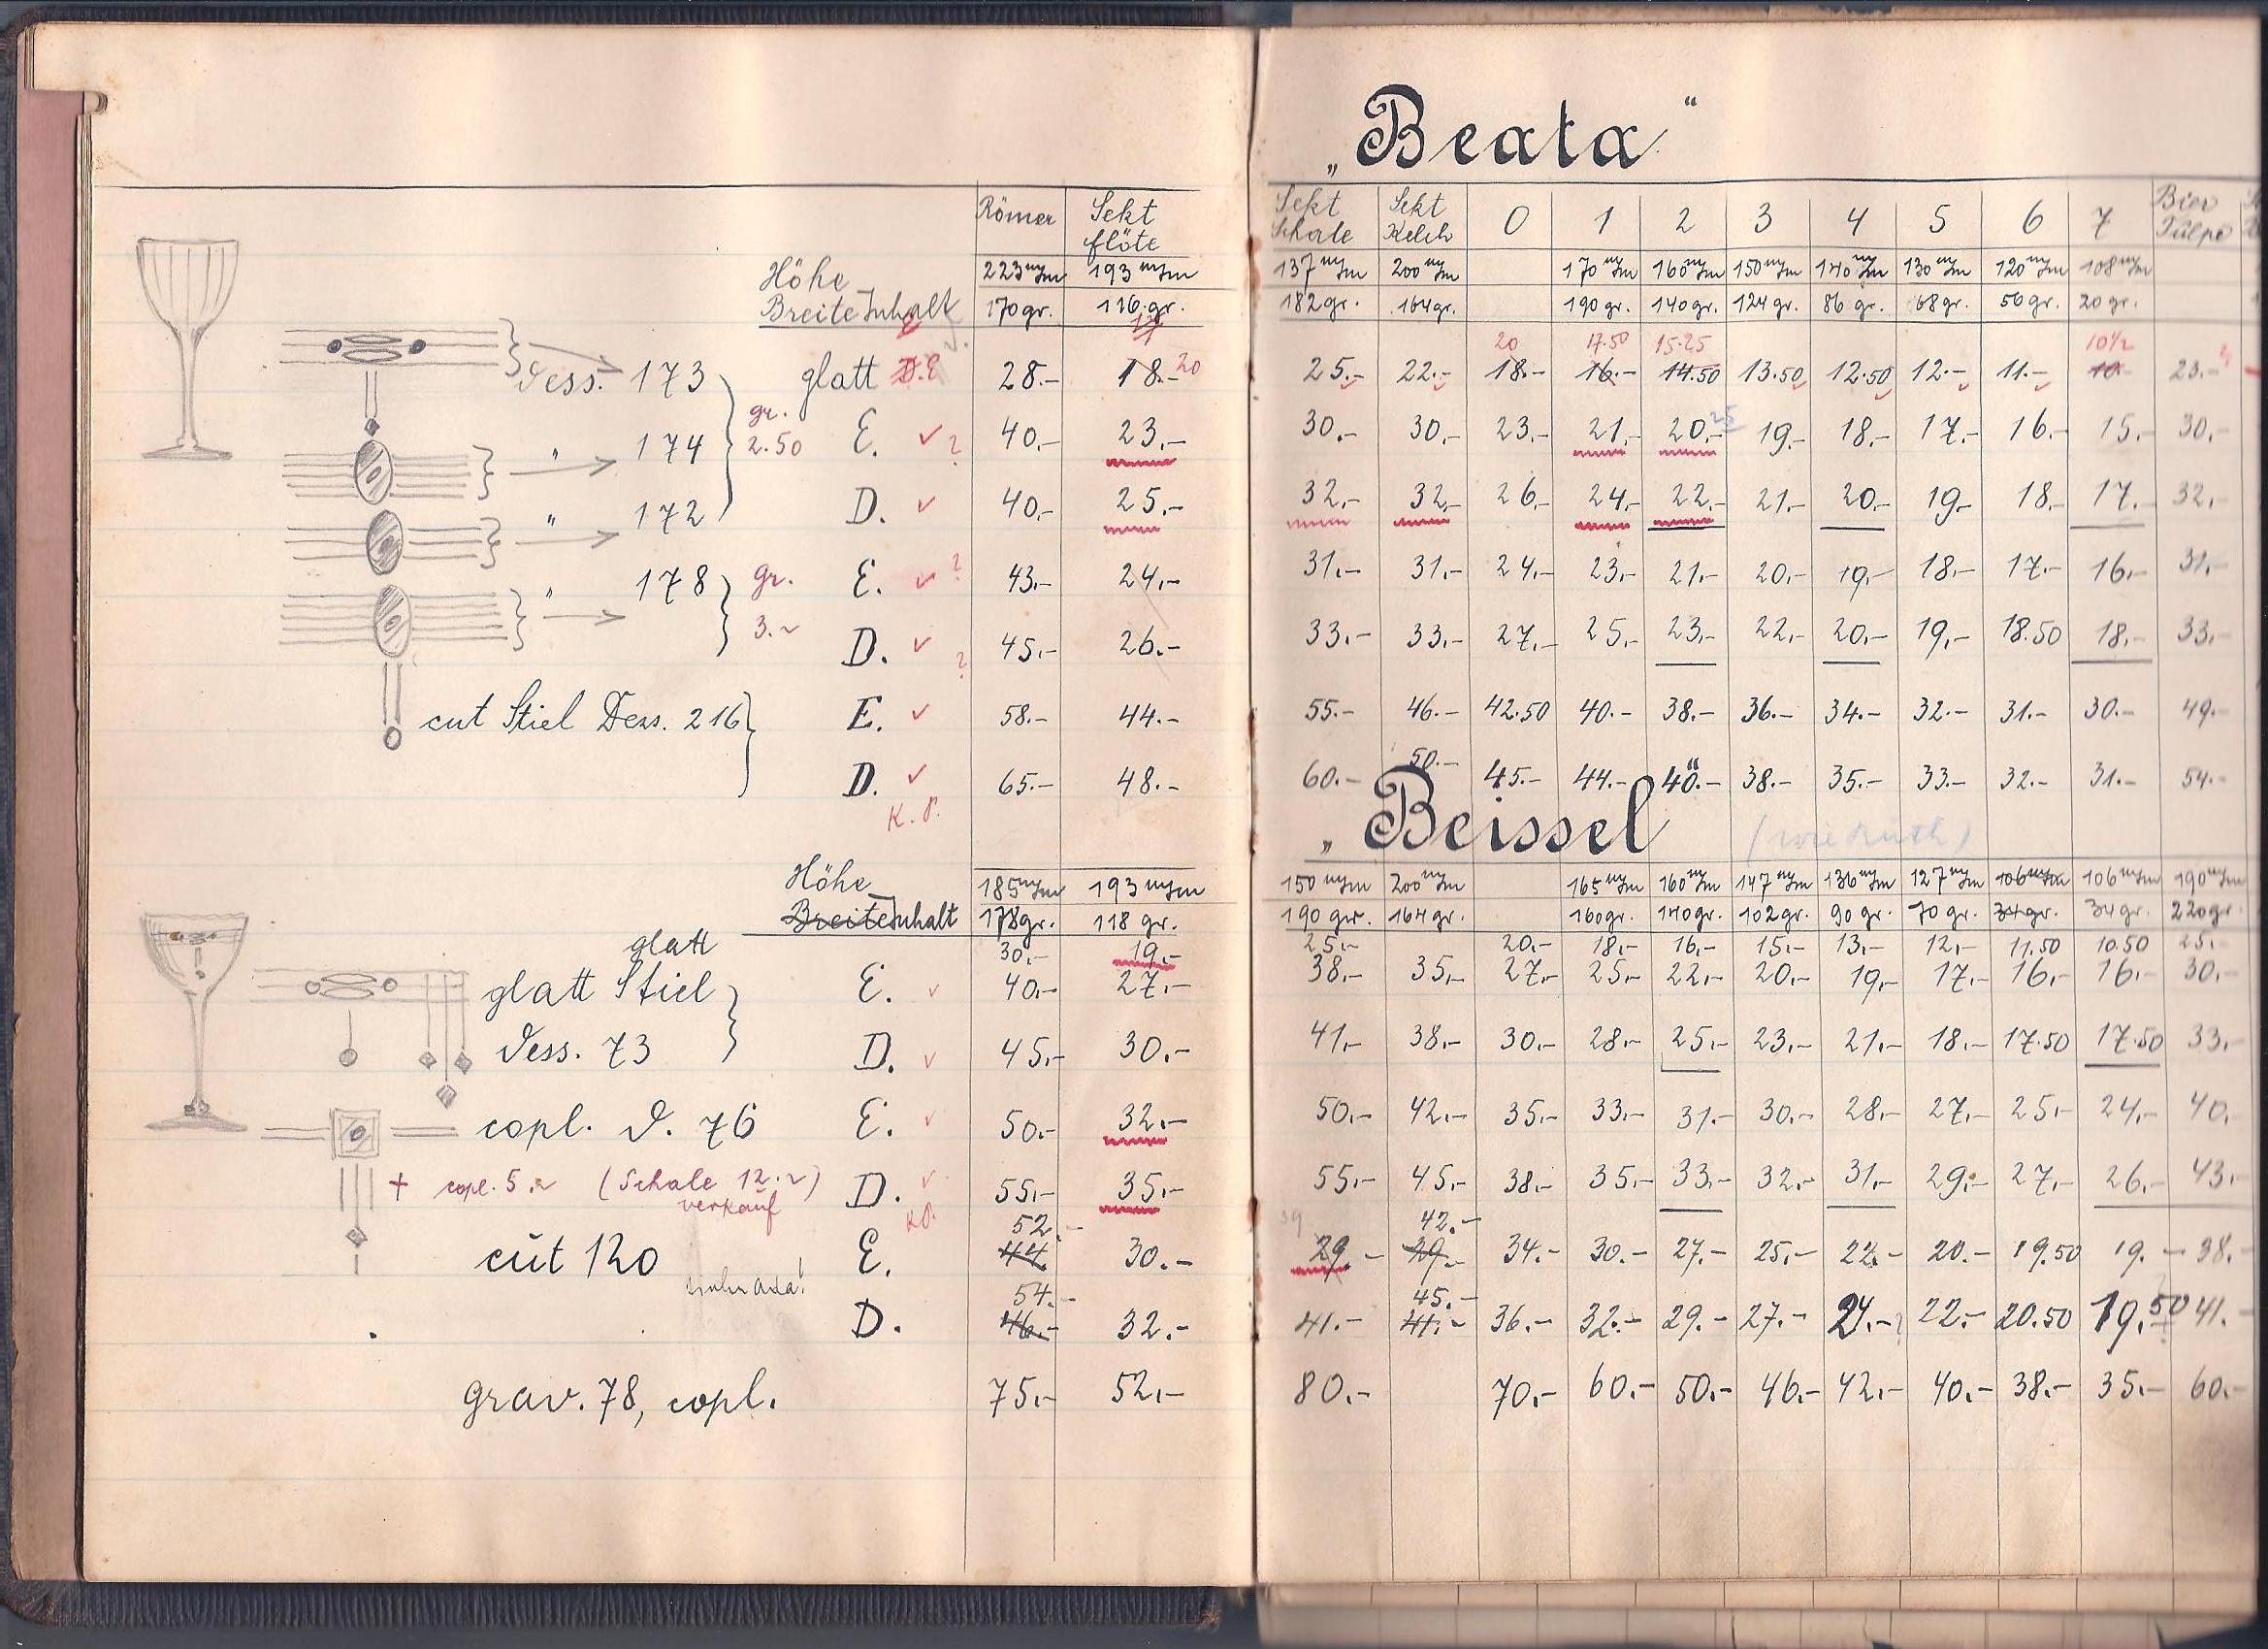 „Beata“
Römer Sekt flöte Sekt Schale Sekt Kelch 0 1 2 3 4 5 6 7 Bier Tulpe
Höhe 223 m/m 193 m/m 137 m/m 200 m/m 170 m/m 160 m/m 150 m/m 140 m/m 130 m/m 120 m/m 108 m/m
Breite Inhalt 170 gr. 116 gr. 182 gr. 164 gr. 190 gr. 140 gr. 124 gr. 86 gr. 68 gr. 56 gr. 20 gr.
20 17.50 15.25 10½
Dess. 173 glatt D.E 28.- 18.- 20 25.- 22.- 18.- 16.- 14.50 13.50 12.50 12.- 11.- 10.- 23.-
" 174 gr. 2.50 E. ? 40.- 23.- 30.- 30.- 23.- 21.- 20.- 25 19.- 18.- 17.- 16.- 15.- 30.-
" 172 D. 40.- 25.- 32.- 32.- 26.- 24.- 22.- 21.- 20.- 19.- 18.- 17.- 32.-
" 178 gr. E. ? 43.- 24.- 31.- 31.- 24.- 23.- 21.- 20.- 19.- 18.- 17.- 16.- 31.-
3.- D. ? 45.- 26.- 33.- 33.- 27.- 25.- 23.- 22.- 20.- 19.- 18.50 18.- 33.-
cut Stiel Dess. 216 E. 58.- 44.- 55.- 46.- 42.50 40.- 38.- 36.- 34.- 32.- 31.- 30.- 49.-
D. 65.- 48.- 60.- 50.- 45.- 44.- 40.- 38.- 35.- 33.- 32.- 31.- 54.-
K.P.
„Beissel“ (wie Ruth)
Höhe 185 m/m 193 m/m 150 m/m 200 m/m 165 m/m 160 m/m 147 m/m 136 m/m 127 m/m 106 m/m 106 m/m 190 m/m
Breite Inhalt 178 gr. 118 gr. 190 gr. 164 gr. 160 gr. 140 gr. 102 gr. 90 gr. 70 gr. 34 gr. 34 gr. 220 gr.
glatt 30.- 19.- 25.- 20.- 18.- 16.- 15.- 13.- 12.- 11.50 10.50 25.-
glatt Stiel E. 40.- 27.- 38.- 35.- 27.- 25.- 22.- 20.- 19.- 17.- 16.- 16.- 30.-
Dess. 73 D. 45.- 30.- 41.- 38.- 30.- 28.- 25.- 23.- 21.- 18.- 17.50 17.50 33.-
copl. D. 76 E. 50.- 32.- 50.- 42.- 35.- 33.- 31.- 30.- 28.- 27.- 25.- 24.- 40.-
+ copl. 5.- (Schale 12.-) D. 55.- 35.- 55.- 45.- 38.- 35.- 33.- 32.- 31.- 29.- 27.- 26.- 43.-
verkauf
52.- 39 42.-
cut 120 E. 44 30.- 29.- 29.- 34.- 30.- 27.- 25.- 22.- 20.- 19.50 19.- 38.-
54.- 45.-
D. 46.- 32.- 41.- 41.- 36.- 32.- 29.- 27.- 24.- 22.- 20.50 19.50 41.-
grav. 78, copl. 75.- 52.- 80.- 70.- 60.- 50.- 46.- 42.- 40.- 38.- 35.- 60.-